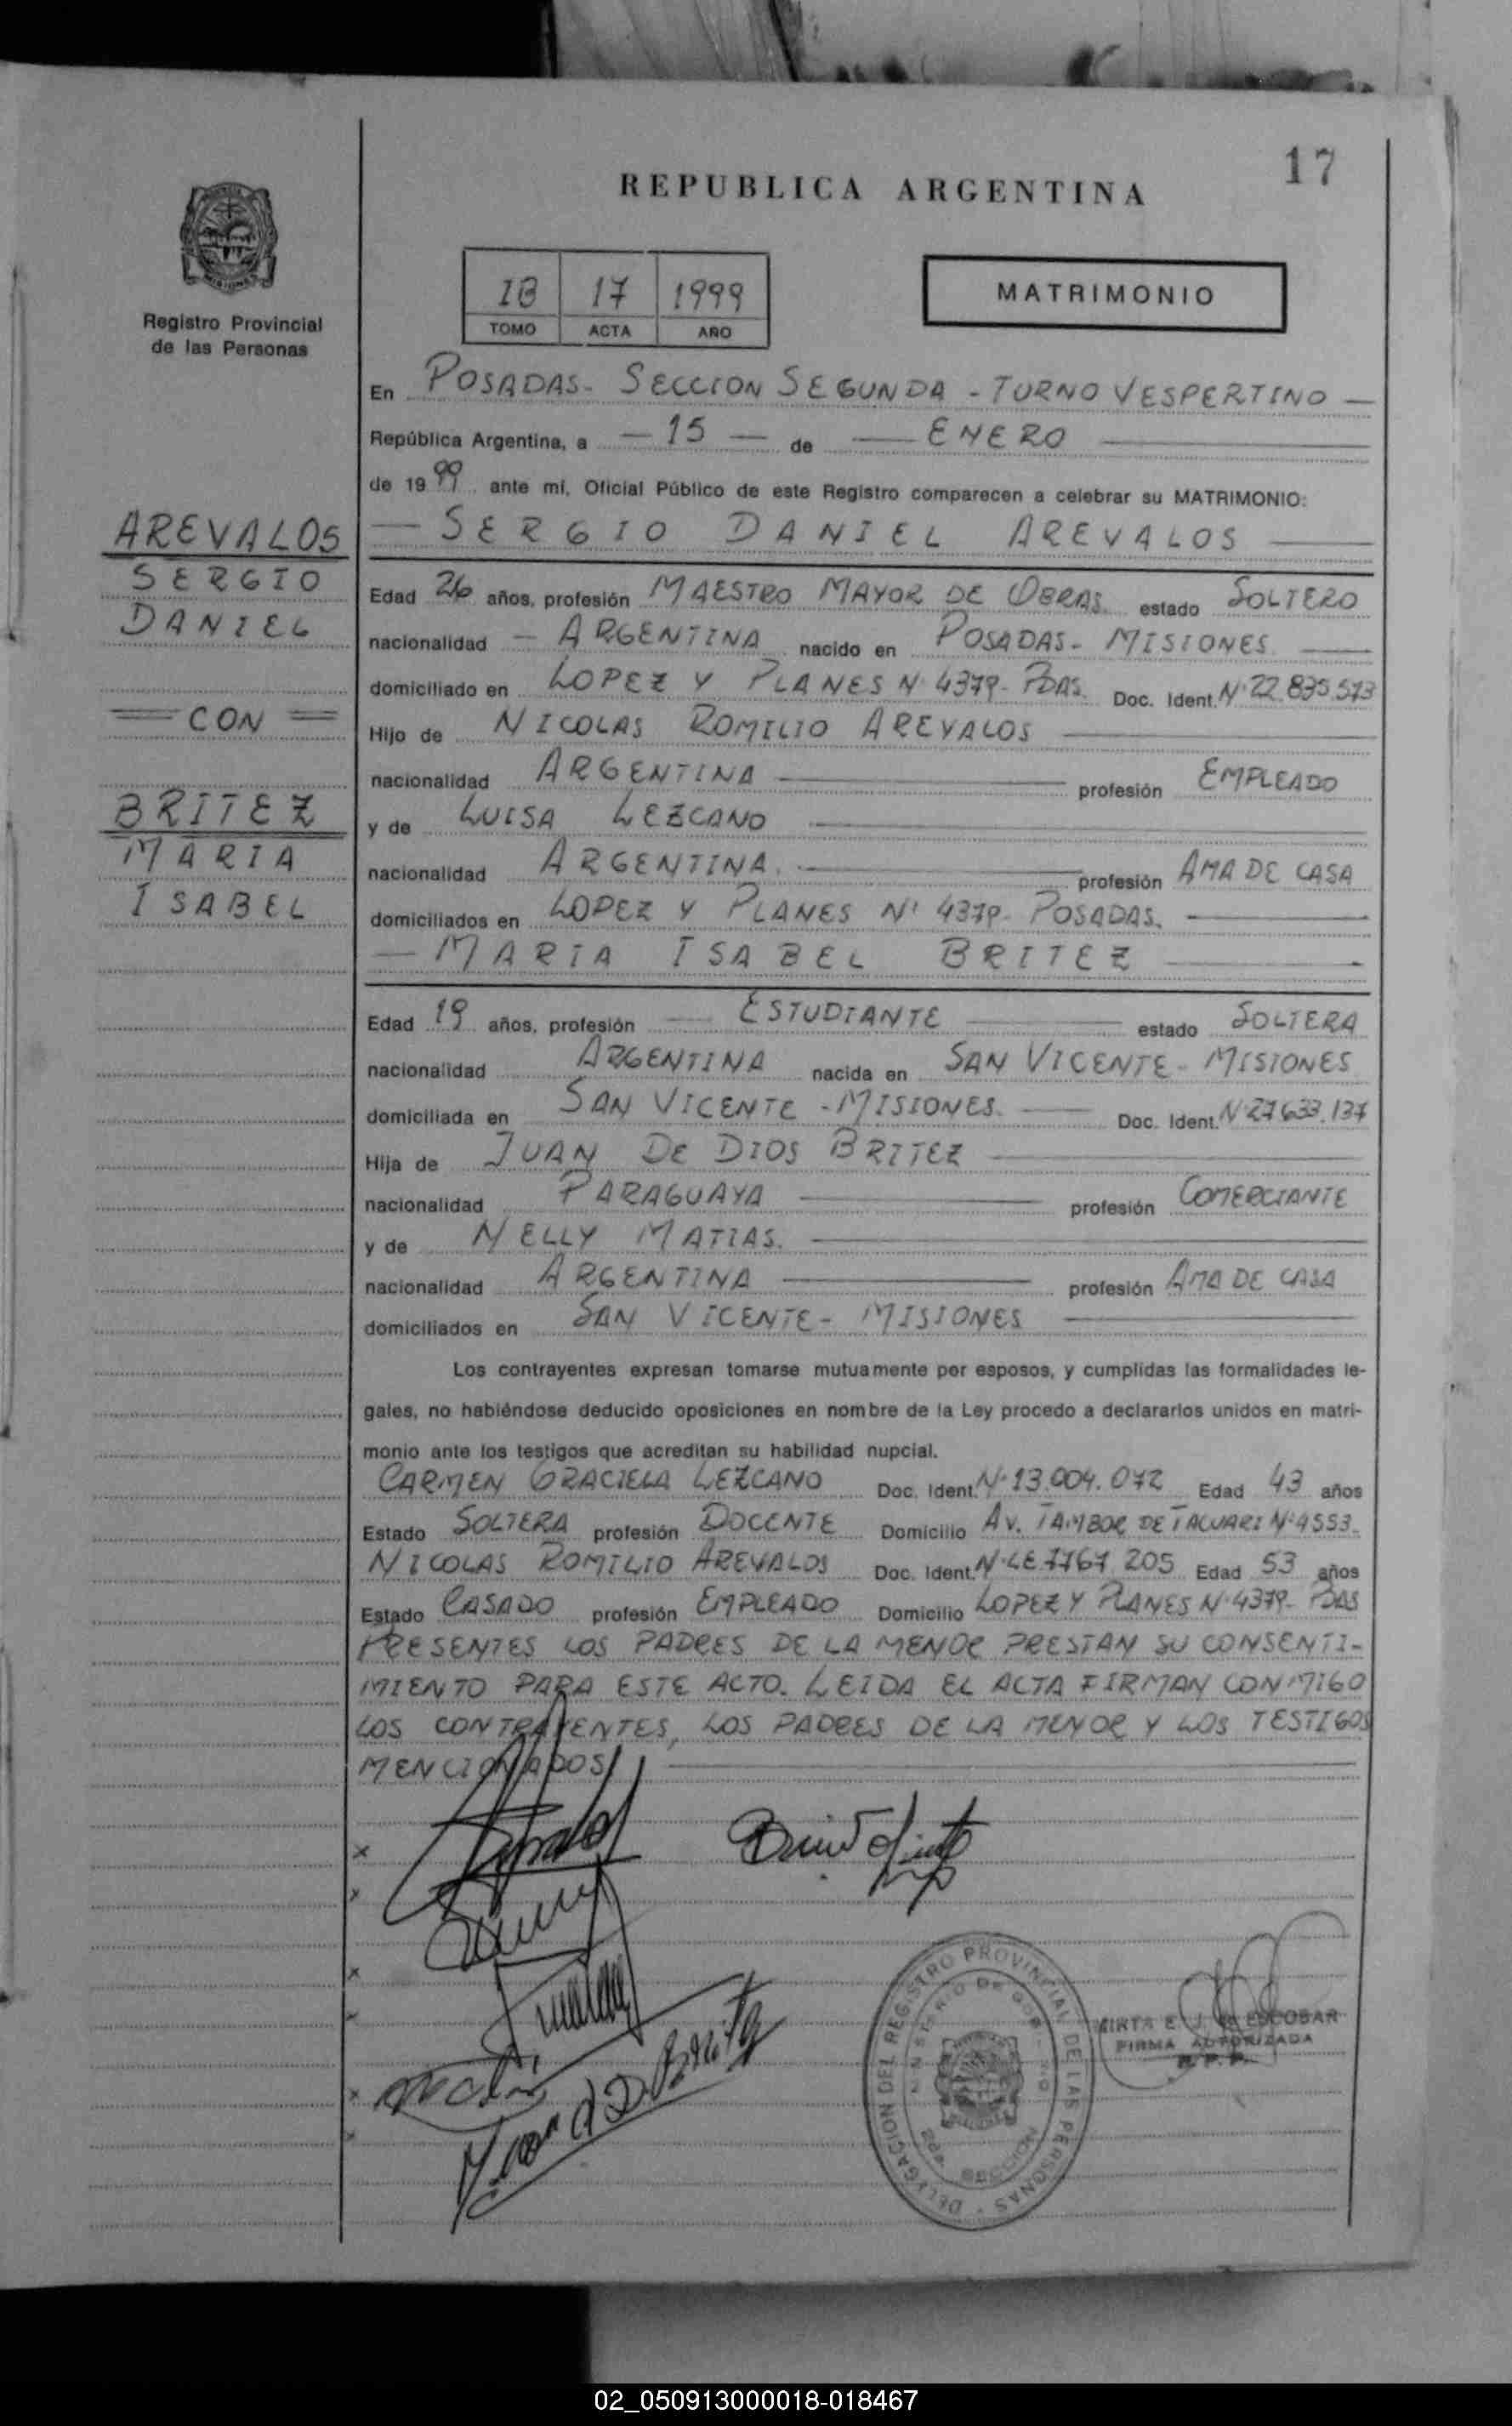 17
REPUBLICA ARGENTINA
Registro Provincial
de las Personas
IB 17 1999
TOMO ACTA AÑO
MATRIMONIO
En POSADAS - SECCION SEGUNDA - TURNO VESPERTINO
República Argentina, a 15 de ENERO
de 1999 ante mí, Oficial Público de este Registro comparecen a celebrar su MATRIMONIO:
AREVALOS
SERGIO
DANIEL
CON
BRITEZ
MARIA
ISABEL
SERGIO DANIEL AREVALOS
Edad 26 años, profesión MAESTRO MAYOR DE OBRAS. estado SOLTERO
nacionalidad ARGENTINA nacido en POSADAS - MISIONES
domiciliado en LOPEZ Y PLANES N° 4379 - PDAS. Doc. Ident. N° 22.835.573
Hijo de NICOLAS ROMILIO AREVALOS
nacionalidad ARGENTINA profesión EMPLEADO
y de LUISA LEZCANO
nacionalidad ARGENTINA. profesión AMA DE CASA
domiciliados en LOPEZ Y PLANES N° 4379 - POSADAS.
MARIA ISABEL BRITEZ
Edad 19 años, profesión ESTUDIANTE estado SOLTERA
nacionalidad ARGENTINA nacida en SAN VICENTE - MISIONES
domiciliada en SAN VICENTE - MISIONES. Doc. Ident. N° 27.633.137
Hija de JUAN DE DIOS BRITEZ
nacionalidad PARAGUAYA profesión COMERCIANTE
y de NELLY MATIAS.
nacionalidad ARGENTINA profesión AMA DE CASA
domiciliados en SAN VICENTE - MISIONES
Los contrayentes expresan tomarse mutuamente por esposos, y cumplidas las formalidades le-
gales, no habiéndose deducido oposiciones en nombre de la Ley procedo a declararlos unidos en matri-
monio ante los testigos que acreditan su habilidad nupcial.
CARMEN GRACIELA LEZCANO Doc. Ident. N° 13.004.072 Edad 43 años
Estado SOLTERA profesión DOCENTE Domicilio AV. TAMBOR DE TACUARI N° 4553.
NICOLAS ROMILIO AREVALOS Doc. Ident. N° LE 7767.205 Edad 53 años
Estado CASADO profesión EMPLEADO Domicilio LOPEZ Y PLANES N° 4379 - PDAS
PRESENTES LOS PADRES DE LA MENOR PRESTAN SU CONSENTI-
MIENTO PARA ESTE ACTO. LEIDA EL ACTA FIRMAN CONMIGO
LOS CONTRAYENTES, LOS PADRES DE LA MENOR Y LOS TESTIGOS
MENCIONADOS
DELEGACION DEL REGISTRO PROVINCIAL DE LAS PERSONAS
SECCION
MIRTA E. J. ESCOBAR
FIRMA AUTORIZADA
R. P. P.
02_050913000018-018467